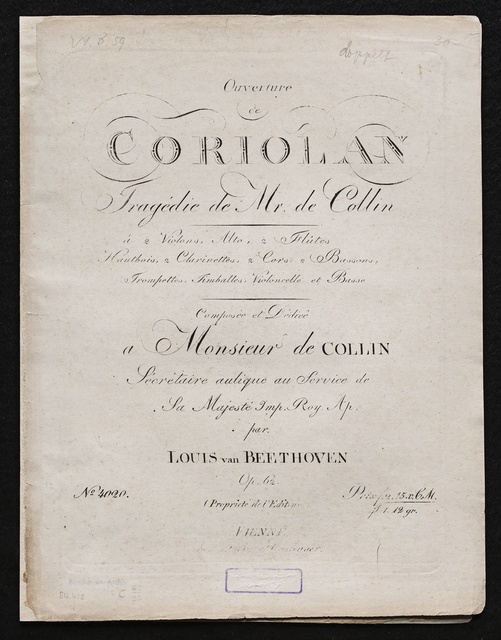 Ouverture
de
CORIOLAN
Tragédie de Mr. de Collin
à 2 Violons, Alto, 2 Flûtes
Hautbois, 2 Clarinettes, 2 Cors 2 Bassons,
Trompettes, Timballes, Violoncelle et Basse
Composée et Dediée
a Monsieur de COLLIN
Sécrétaire aulique au Service de
Sa Majesté Imp. Roy. Ap.
par
LOUIS van BEETHOVEN
Op. 62.
No 4020.
(Propriété de l'Editeur)
f 1. 12 gr.
VIENNE